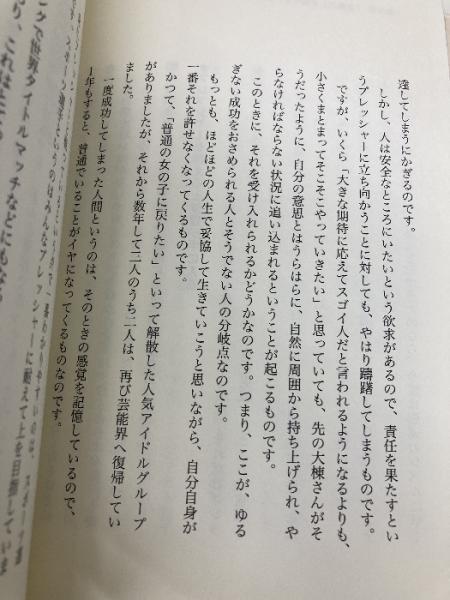 達してしまうにかぎるのです。
しかし、人は安全なところにいたいという欲求があるので、責任を果たすとい
うプレッシャーに立ち向かうことに対しても、やはり躊躇してしまうものです。
ですが、いくら「大きな期待に応えてスゴイ人だと言われるようになるよりも、
小さくまとまってそこそこやっていきたい」と思っていても、先の大棟さんがそ
うだったように、自分の意思とはうらはらに、自然に周囲から持ち上げられ、や
らなければならない状況に追い込まれるということが起こるものです。
このときに、それを受け入れられるかどうかなのです。つまり、ここが、ゆる
ぎない成功をおさめられる人とそうでない人の分岐点なのです。
もっとも、ほどほどの人生で妥協して生きていこうと思いながら、自分自身が
一番それを許せなくなってくるものです。
かつて、「普通の女の子に戻りたい」といって解散した人気アイドルグループ
がありましたが、それから数年して三人のうち二人は、再び芸能界へ復帰してい
ました。
一度成功してしまった人間というのは、そのときの感覚を記憶しているので、
1年もすると、普通でいることがイヤになってくるものなのです。
プレッシャーに耐えて上を目指していま
ングで世界タイトルマッチなどにもなる